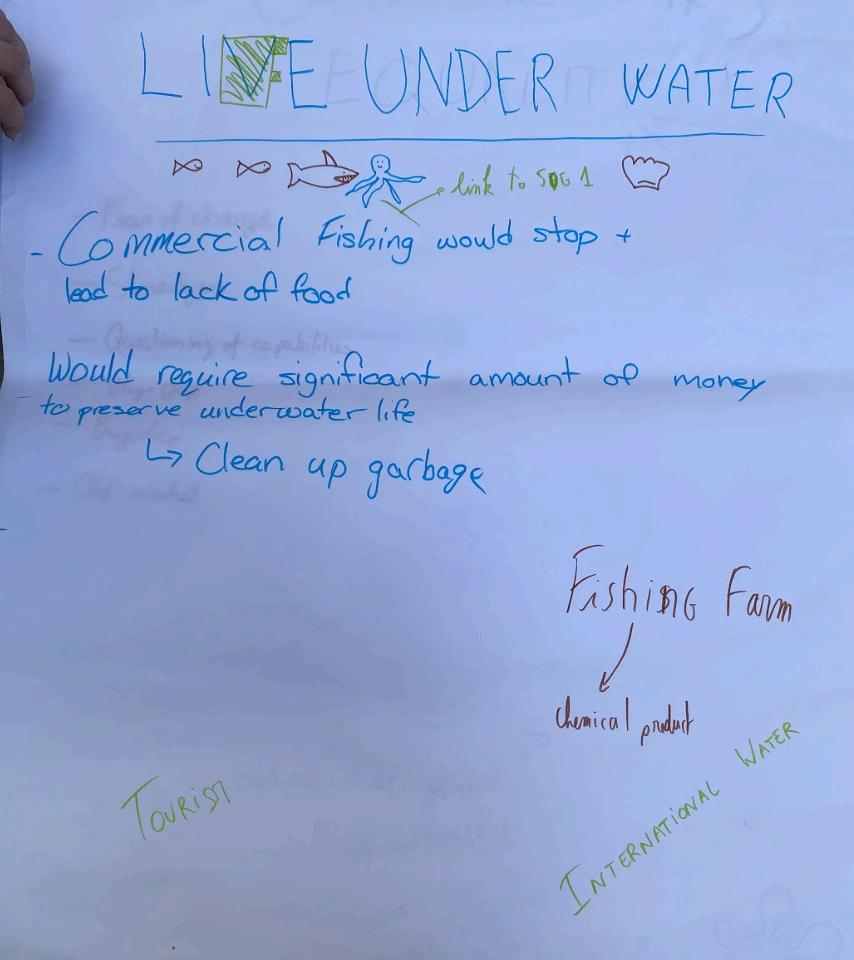 LIFE UNDER WATER
link to SDG 1
- Commercial Fishing would stop +
lead to lack of food
Would require significant amount of money
- to preserve underwater life
↳ Clean up garbage
Fishing Farm
chemical product
Tourist
International Water